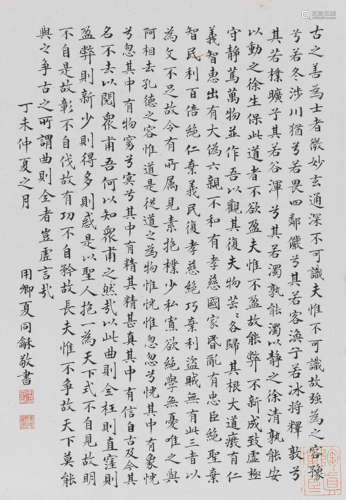 古之善為士者微妙玄通深不可識夫惟不可識故強為之容豫
兮若冬涉川猶兮若畏四鄰儼兮其若客渙于若冰將釋敦兮
其若樸曠子其若谷渾兮其若濁孰能濁以靜之徐清孰能安
以動之徐生保此道者不欲盈夫惟不盈故能弊不新成致虛極
守靜篤萬物並作吾以觀其復夫物芸芸各歸其根大道廢有仁
義智惠出有大偽六親不和有孝慈國家昏亂有忠臣絕聖棄
智民利百倍絕仁棄義民復孝慈絕巧棄利盜賊無有此三者以
為文不足故令有所屬見素抱樸少私寡欲絕學無憂唯之與
阿相去孔德之容惟道是從道之為物惟恍惟忽忽兮恍其中有象恍
兮忽其中有物窈兮冥兮其中有精其精甚真其中有信自古及今其
名不去以閱衆甫吾何以知衆甫之然哉以此曲則全枉則直窪則
盈弊則新少則得多則惑是以聖人抱一為天下式不自見故明
不自是故彰不自伐故有功不自矜故長夫惟不爭故天下莫能
與之爭古之所謂曲則全者豈虛言哉
丁未仲夏之月
用卿夏同龢敬書